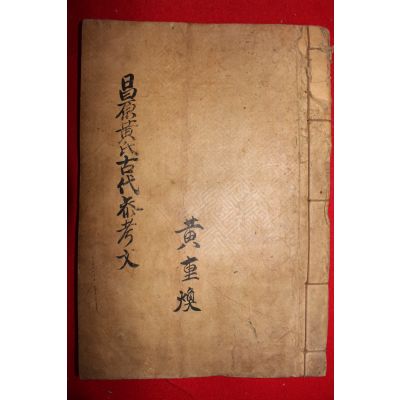 昌原黃氏古代參考文
黃重煥